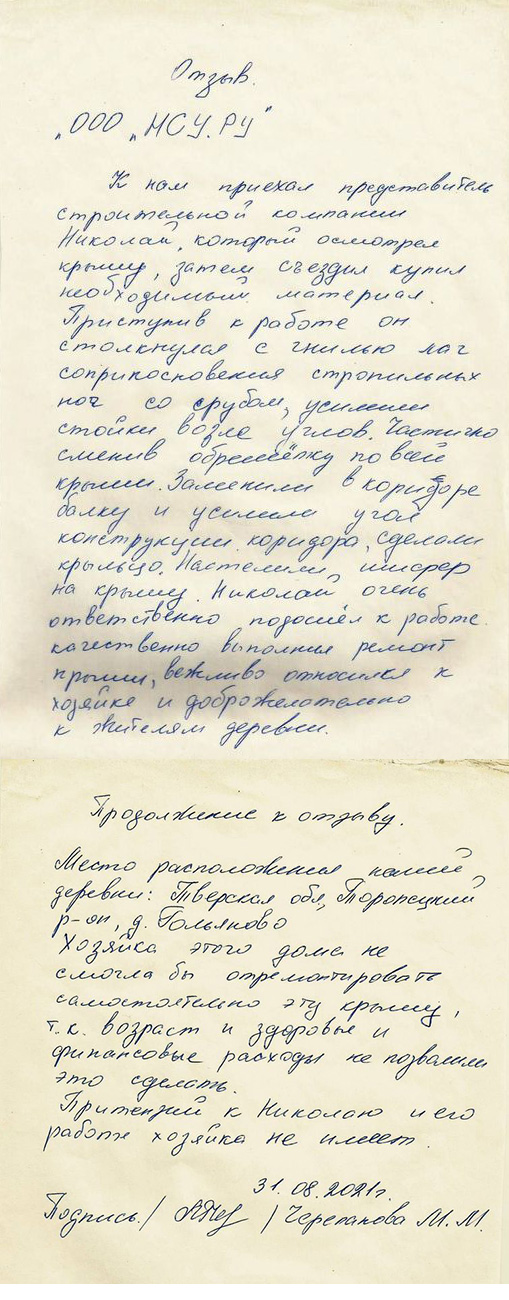 Отзыв.
„ООО „НСУ.РУ"
К нам приехал представитель
строительной компании
Николай, который осмотрел
крышу, затем съездил купил
необходимый материал.
Приступив к работе он
столкнулся с гнилью мест
соприкосновения стропильных
ног со срубом, усилили
стойки возле углов. Частично
сменив обрешётку по всей
крыши. Заменили в коридоре
балку и усилили угол
конструкции коридора, сделали
крыльцо. Настелили шифер
на крышу. Николай очень
ответственно подошёл к работе.
качественно выполнил ремонт
крыши, вежливо относился к
хозяйке и доброжелательно
к жителям деревни.
Продолжение к отзыву.
Место расположения нашей
деревни: Тверская обл, Торопецкий
р-он, д. Гольяново
Хозяйка этого дома не
смогла бы отремонтировать
самостоятельно эту крышу,
т.к. возраст и здоровье и
финансовые расходы не позволили
это сделать.
Притензий к Николаю и его
работе хозяйка не имеет.
31.08.2021г.
Подпись./ /Черепанова М.М.